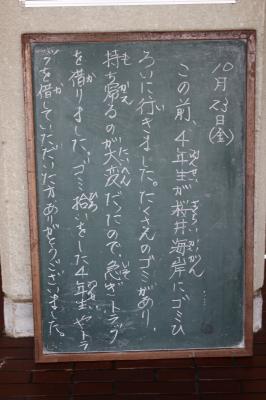 10月23日(金)
この前、4年生が桜井海岸にゴミひ
ろいに行きました。たくさんのゴミがあり、
持ち帰るのが大変だったので、急ぎトラック
を借りました。ゴミ拾いをした4年生やトラ
ックを借していただいた方ありがとうございました。